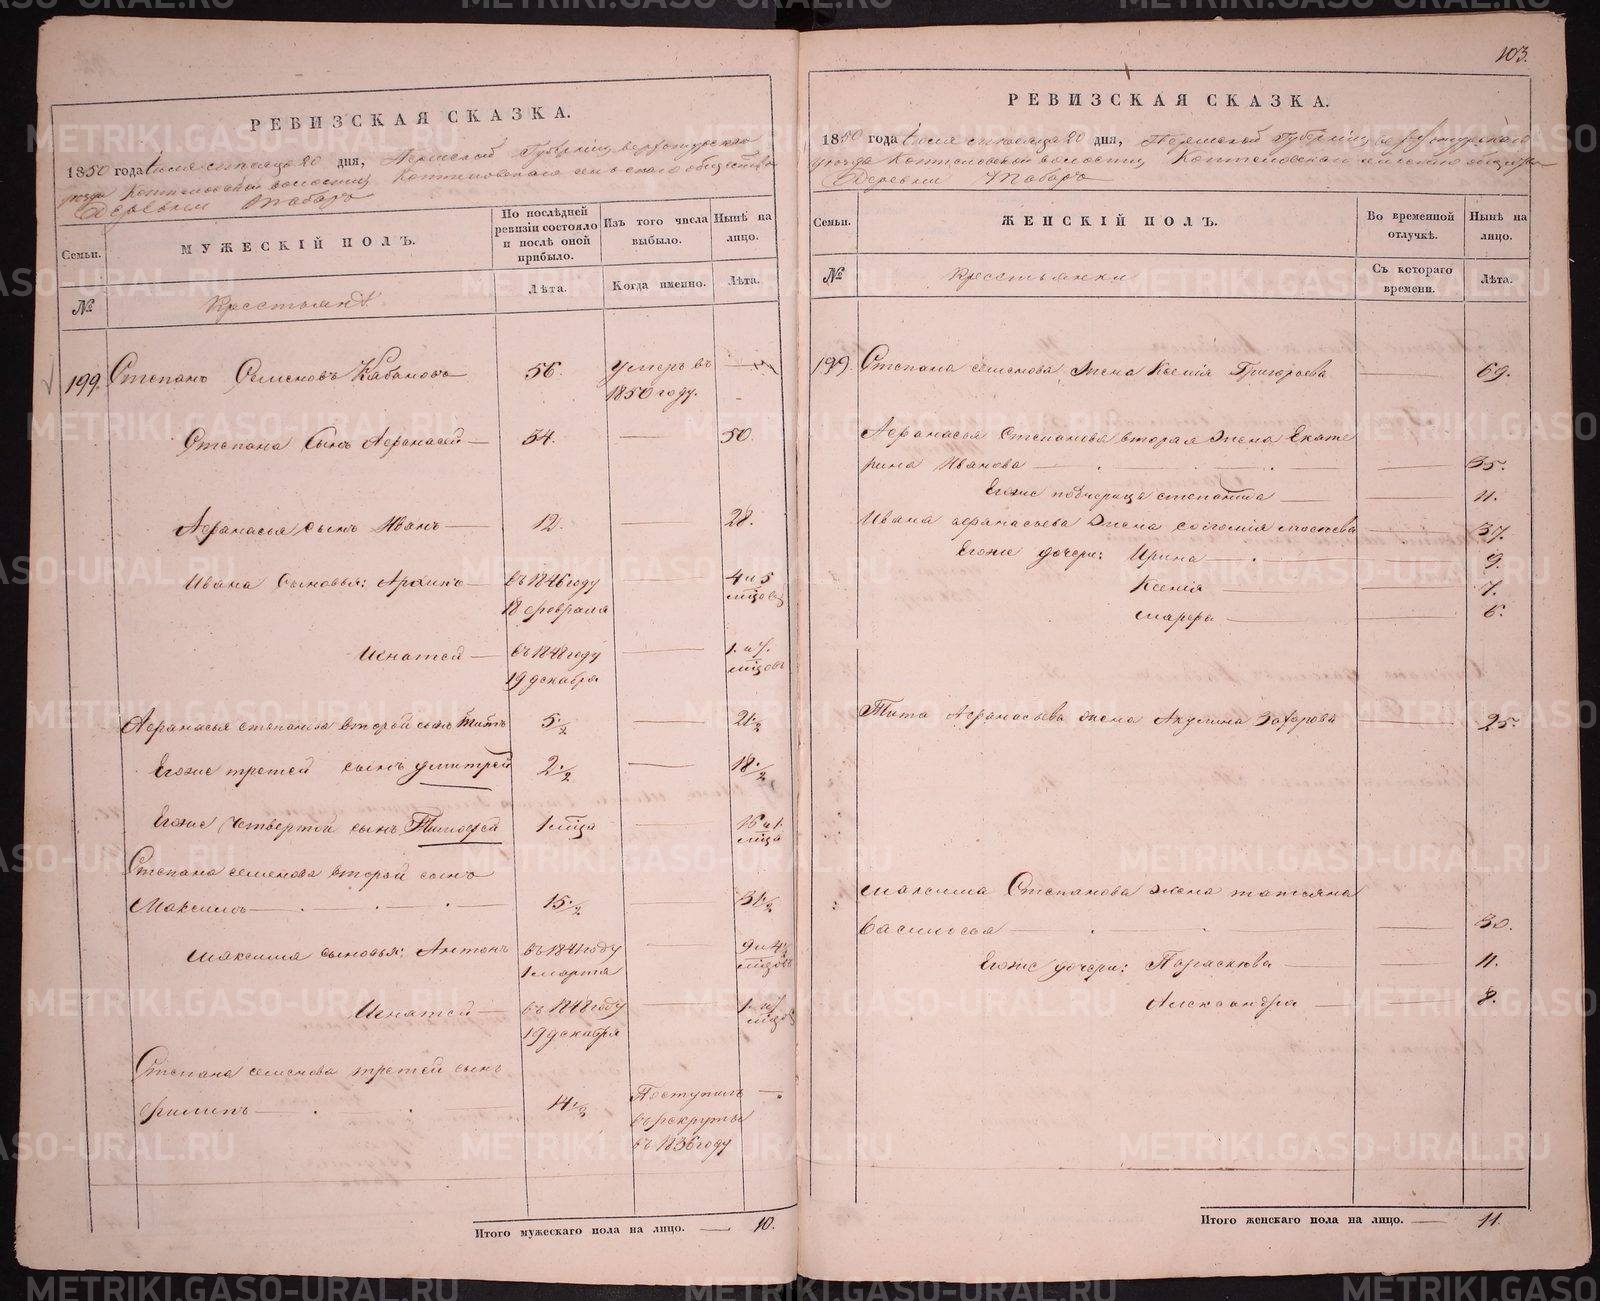 103.
РЕВИЗСКАЯ СКАЗКА.
1850 года июля месяца 20 дня, Пермской Губернии верхотурскаго
уезда Коптеловской волости, Коптеловскаго сельскаго общества
Деревни Табаръ
Семьи.
МУЖЕСКІЙ ПОЛЪ.
По послѣдней ревизіи состояло и послѣ оной прибыло.
Изъ того числа выбыло.
Нынѣ на лицо.
№
Крестьянъ
Лѣта.
Когда именно.
Лѣта.
199. Степанъ Семеновъ Кабаковъ 56. умеръ въ —
1850 году.
Степана сынъ Афанасей — 34. — 50.
Афанасья сынъ Иванъ — 12. 28.
Ивана сыновья: Архипъ — въ 1846 году — 4 и 5
18 февраля мѣсяцовъ
Игнатей — въ 1848 году — 1. и 7.
19 декабря мѣсяцовъ
Афанасья степанова второй сынъ Титъ 5 1/2 — 21 1/2
Егоже третей сынъ Дмитрей 2 1/2 — 18 1/2
Егоже четвертой сынъ Тимофей 1 мѣсяца — 16 и 1.
мѣсяца
Степана семенова второй сынъ
Максимъ — 15 1/2 — 31 1/2
Максима сыновья: Антонъ въ 1841 году — 9 и 4
1 марта мѣсяцовъ
Игнатей — въ 1848 году — 1. и 7
19 декабря мѣсяцов
Степана семенова третей сынъ
Филипъ — 14 1/2 Поступилъ —
въ рекруты
въ 1836 году
Итого мужескаго пола на лицо. — 10.
РЕВИЗСКАЯ СКАЗКА.
1850 года июля месяца 20 дня, Пермской Губернии верхотурскаго
уезда Коптеловской волости, Коптеловскаго сельскаго общества
Деревни Табаръ
Семьи.
ЖЕНСКІЙ ПОЛЪ.
Во временной отлучкѣ.
Нынѣ на лицо.
№
Крестьянки
Съ котораго времени.
Лѣта.
199. Степана семенова жена Ксенія Григорьева — 69.
Афанасья Степанова вторая жена Екате
рина Иванова — 35.
Егоже подчерица степанида — 11.
Ивана афанасьева жена соломия — 37.
Егоже дочери: Ирина — 9.
Ксенія — 7.
марфа — 6.
Тита Афанасьева жена Акулина Захарова — 25.
Максима Степанова жена татьяна
васильева — 30.
Егоже дочери: Параскева — 11.
Александра — 8.
Итого женскаго пола на лицо. — 11.
METRIKI.GASO-URAL.RU